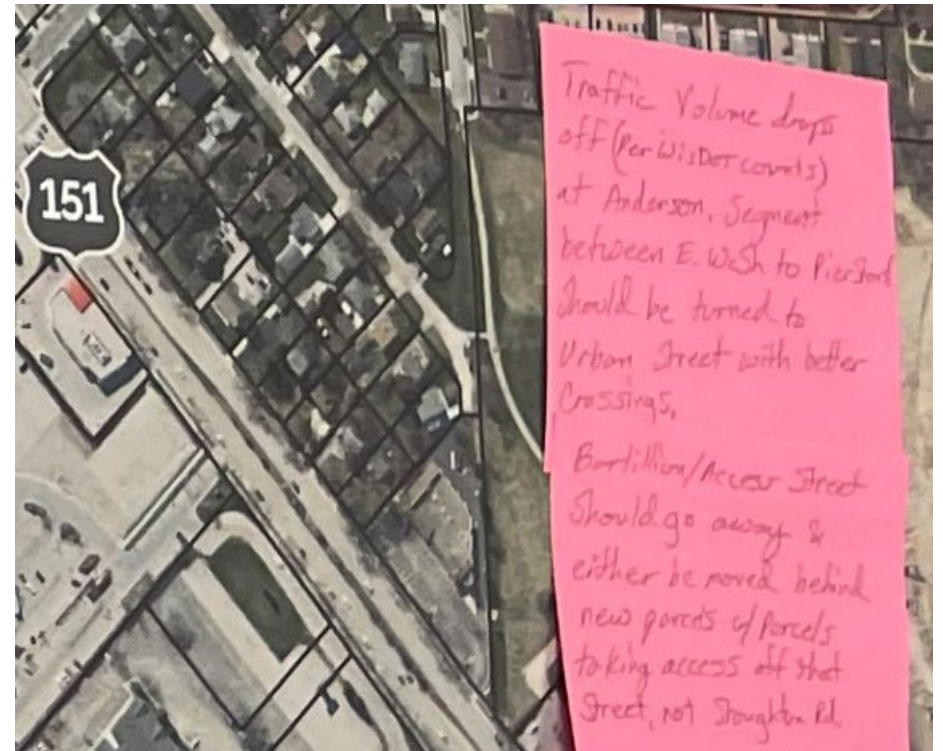 151
Traffic Volume drops
off (Per WisDOT counts)
at Anderson. Segment
between E. Wash to Pierstorf
Should be turned to
Urban Street with better
Crossings.
Bartillion/Access Street
Should go away &
either be moved behind
new parcels w/ Parcels
taking access off that
Street, not Stoughton Rd.